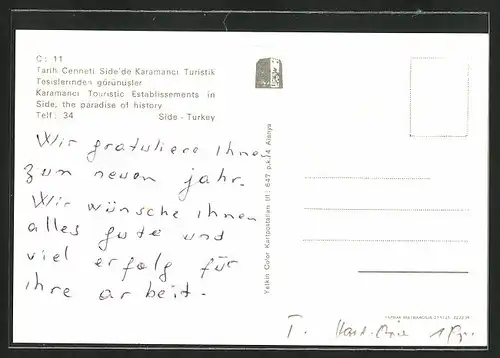 C: 11
Tarih Cenneti Side'de Karamancı Turistik
Tesislerinden görünüşler
Karamancı Touristic Establissements in
Side, the paradise of history
Telf: 34 Side - Turkey
Wir gratuliere Ihnen
zum neuen jahr.
Wir wünsche Ihnen
alles gute und
viel erfolg für
ihre arbeit.
Yetkin Color Kartpostalları tlf: 647 p.k.4 Alanya
T.